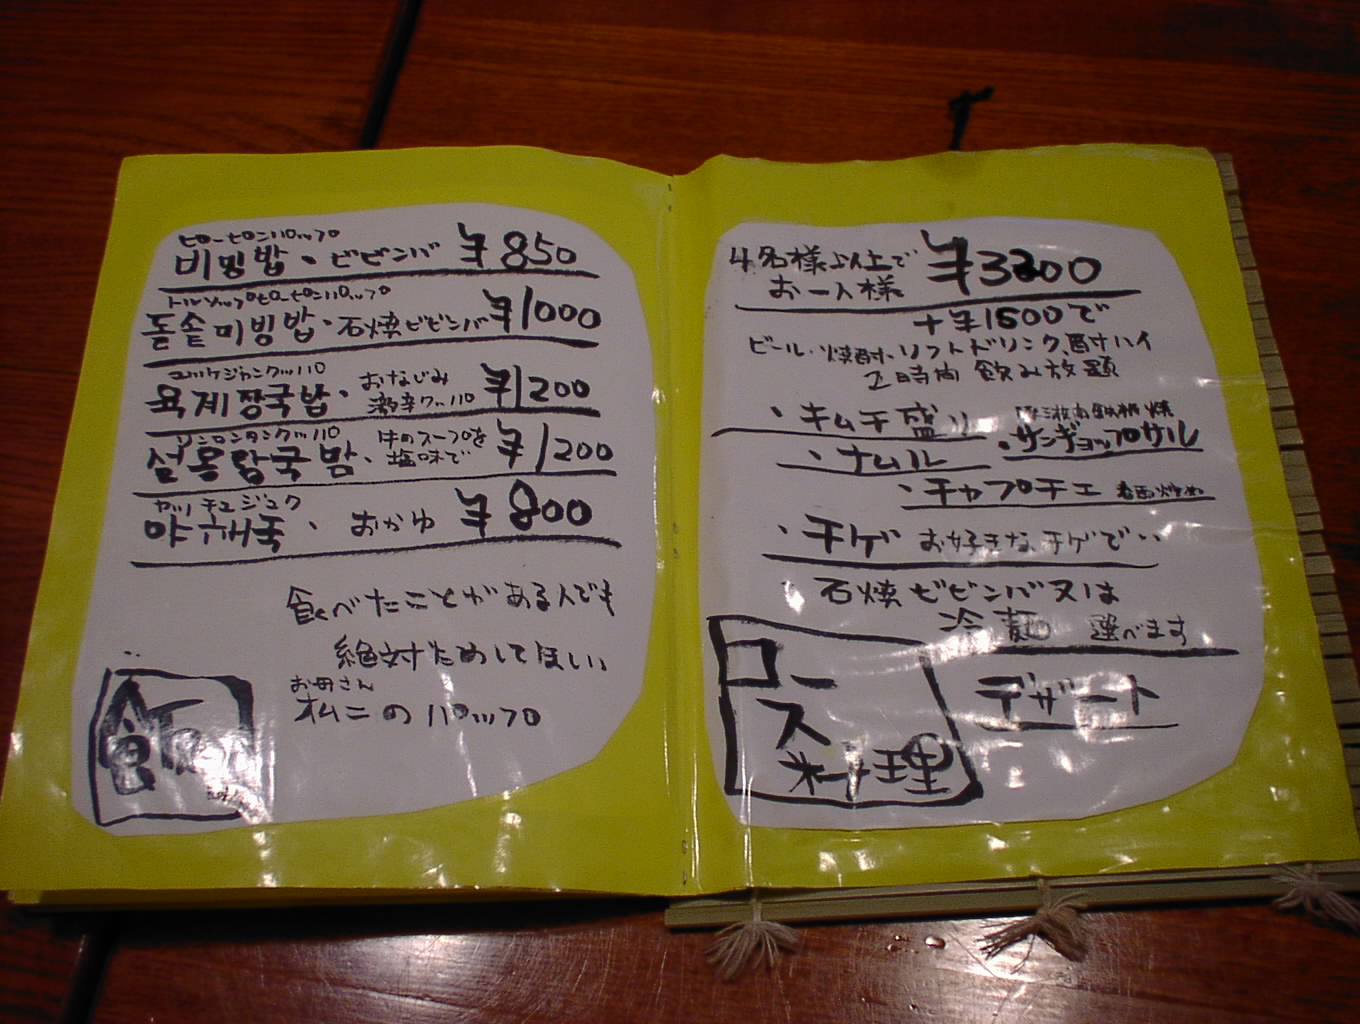 ピビーピンパップ
비빔밥・ビビンバ ¥850
トルソップピビーピンパップ
돌솥미빙밥・石焼ビビンバ ¥1000
ユッケジャンクッパ
육계장국밥・おなじみ 激辛クッパ ¥1200
ソンロンタンクッパ
설롱탕국밥・牛のスープを 塩味で ¥1200
야채죽・おかゆ ¥800
食べたことがある人でも
絶対ためしてほしい
お母さん
オムニのパップ
飯
4名様以上で
お一人様 ¥3200
+¥1500で
ビール・焼酎・ソフトドリンク、酎ハイ
2時間 飲み放題
・キムチ盛り
・サンギョップサル
・ナムル
・チャプチェ 春雨炒め
・チゲ お好きなチゲでい
石焼ビビンバ又は
冷麺 選べます
デザート
コース料理